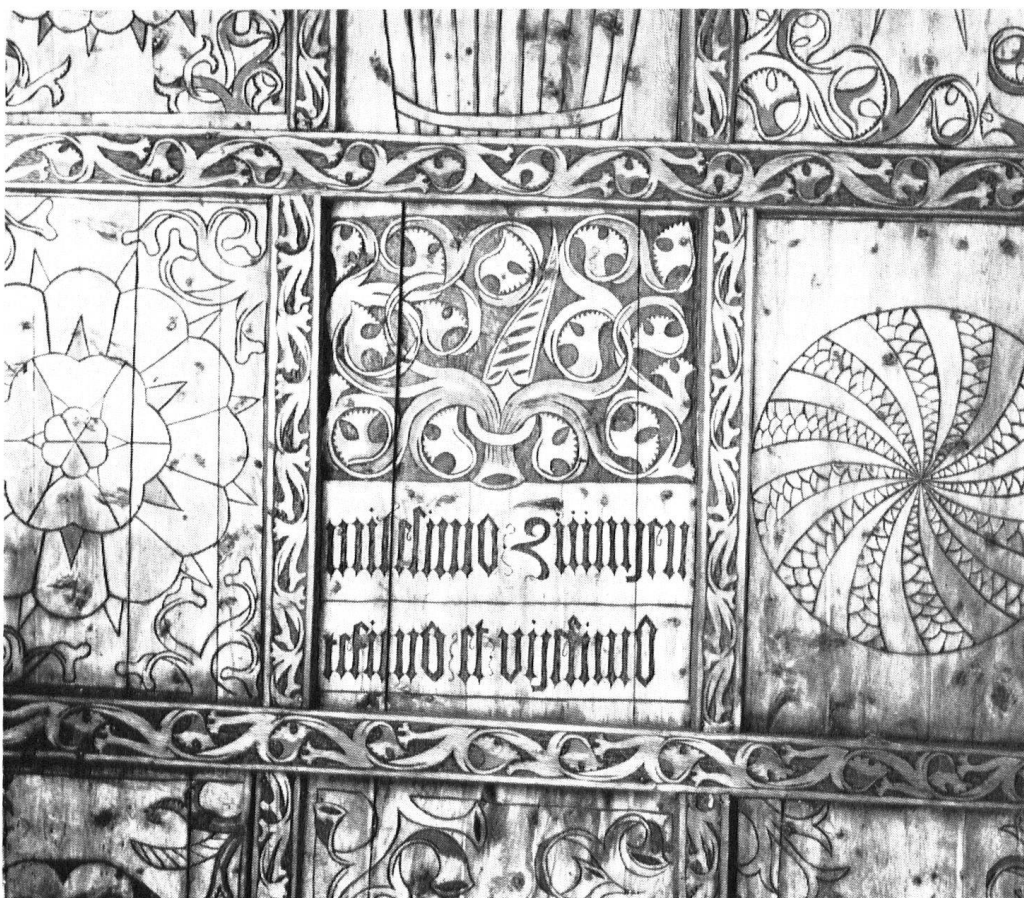 milesimo quingen
tesimo et vigesimo